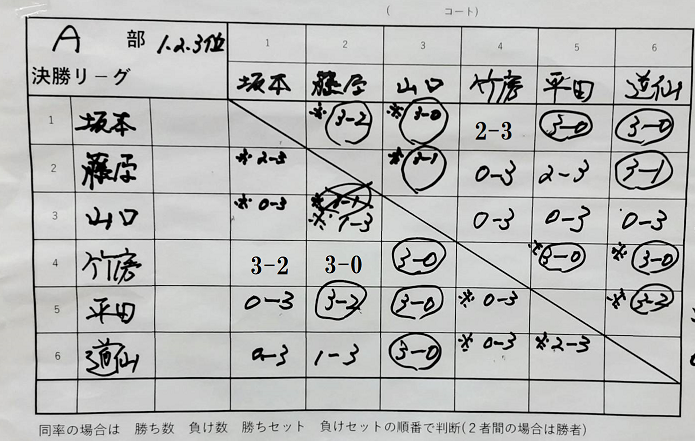 ( コート)
A 部 1.2.3位
決勝リーグ
1 2 3 4 5 6
坂本 藤原 山口 竹房 平田 道仙
1 坂本 ※3-2 ※3-0 2-3 3-0 3-0
2 藤原 ※2-3 ※3-1 0-3 2-3 3-1
3 山口 ※0-3 ※1-3 0-3 0-3 0-3
4 竹房 3-2 3-0 3-0 ※3-0 ※3-0
5 平田 0-3 3-2 3-0 ※0-3 ※3-2
6 道仙 0-3 1-3 3-0 ※0-3 ※2-3
同率の場合は 勝ち数 負け数 勝ちセット 負けセットの順番で判断(2者間の場合は勝者)